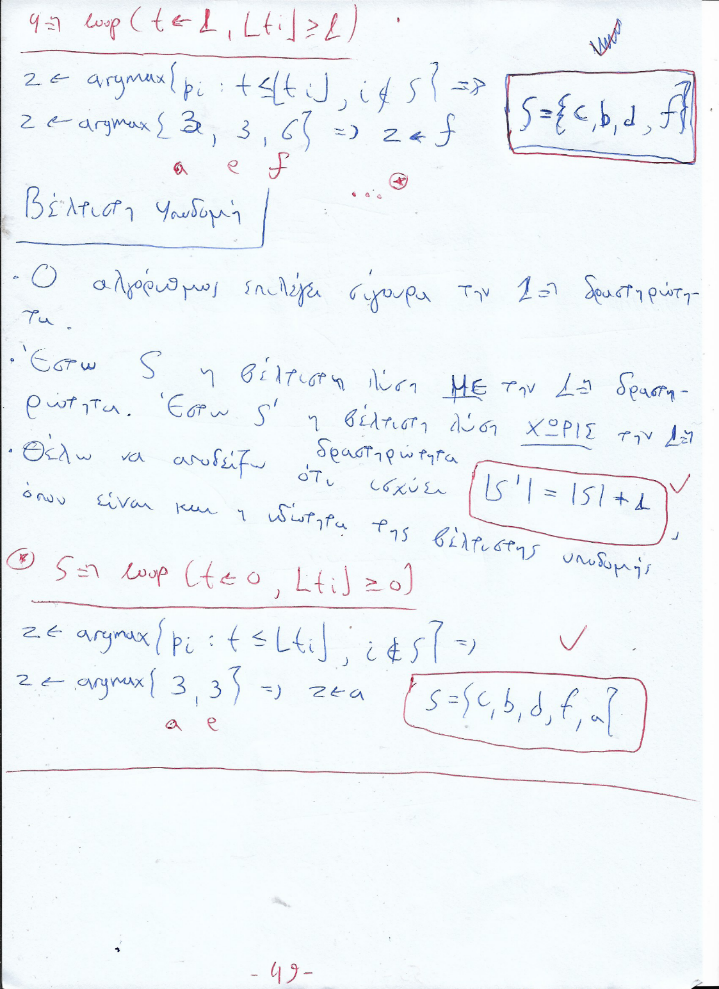 4η loop (t ← 1, ⌊ti⌋ ≥ 1)
z ← argmax{pi : t ≤ ⌊ti⌋, i ∉ S} =>
z ← argmax{3, 3, 6} => z ← f
a e f
S = {c, b, d, f}
...*
Βέλτιστη υποδομή
· Ο αλγόριθμος επιλέγει σίγουρα την 1η δραστηρώτη-
τα.
· Έστω S η βέλτιστη λύση ΜΕ την 1η δραστη-
ρώτητα. Έστω S' η βέλτιστη λύση ΧΩΡΙΣ την 1η
δραστηρώτητα
· Θέλω να αποδείξω ότι ισχύει |S'| = |S| + 1,
όπου είναι και η ιδιότητα της βέλτιστης υποδομής
* 5η loop (t ← 0, ⌊ti⌋ ≥ 0)
z ← argmax{pi : t ≤ ⌊ti⌋, i ∉ S} =>
z ← argmax{3, 3} => z ← a
a e
S = {c, b, d, f, a}
- 49 -